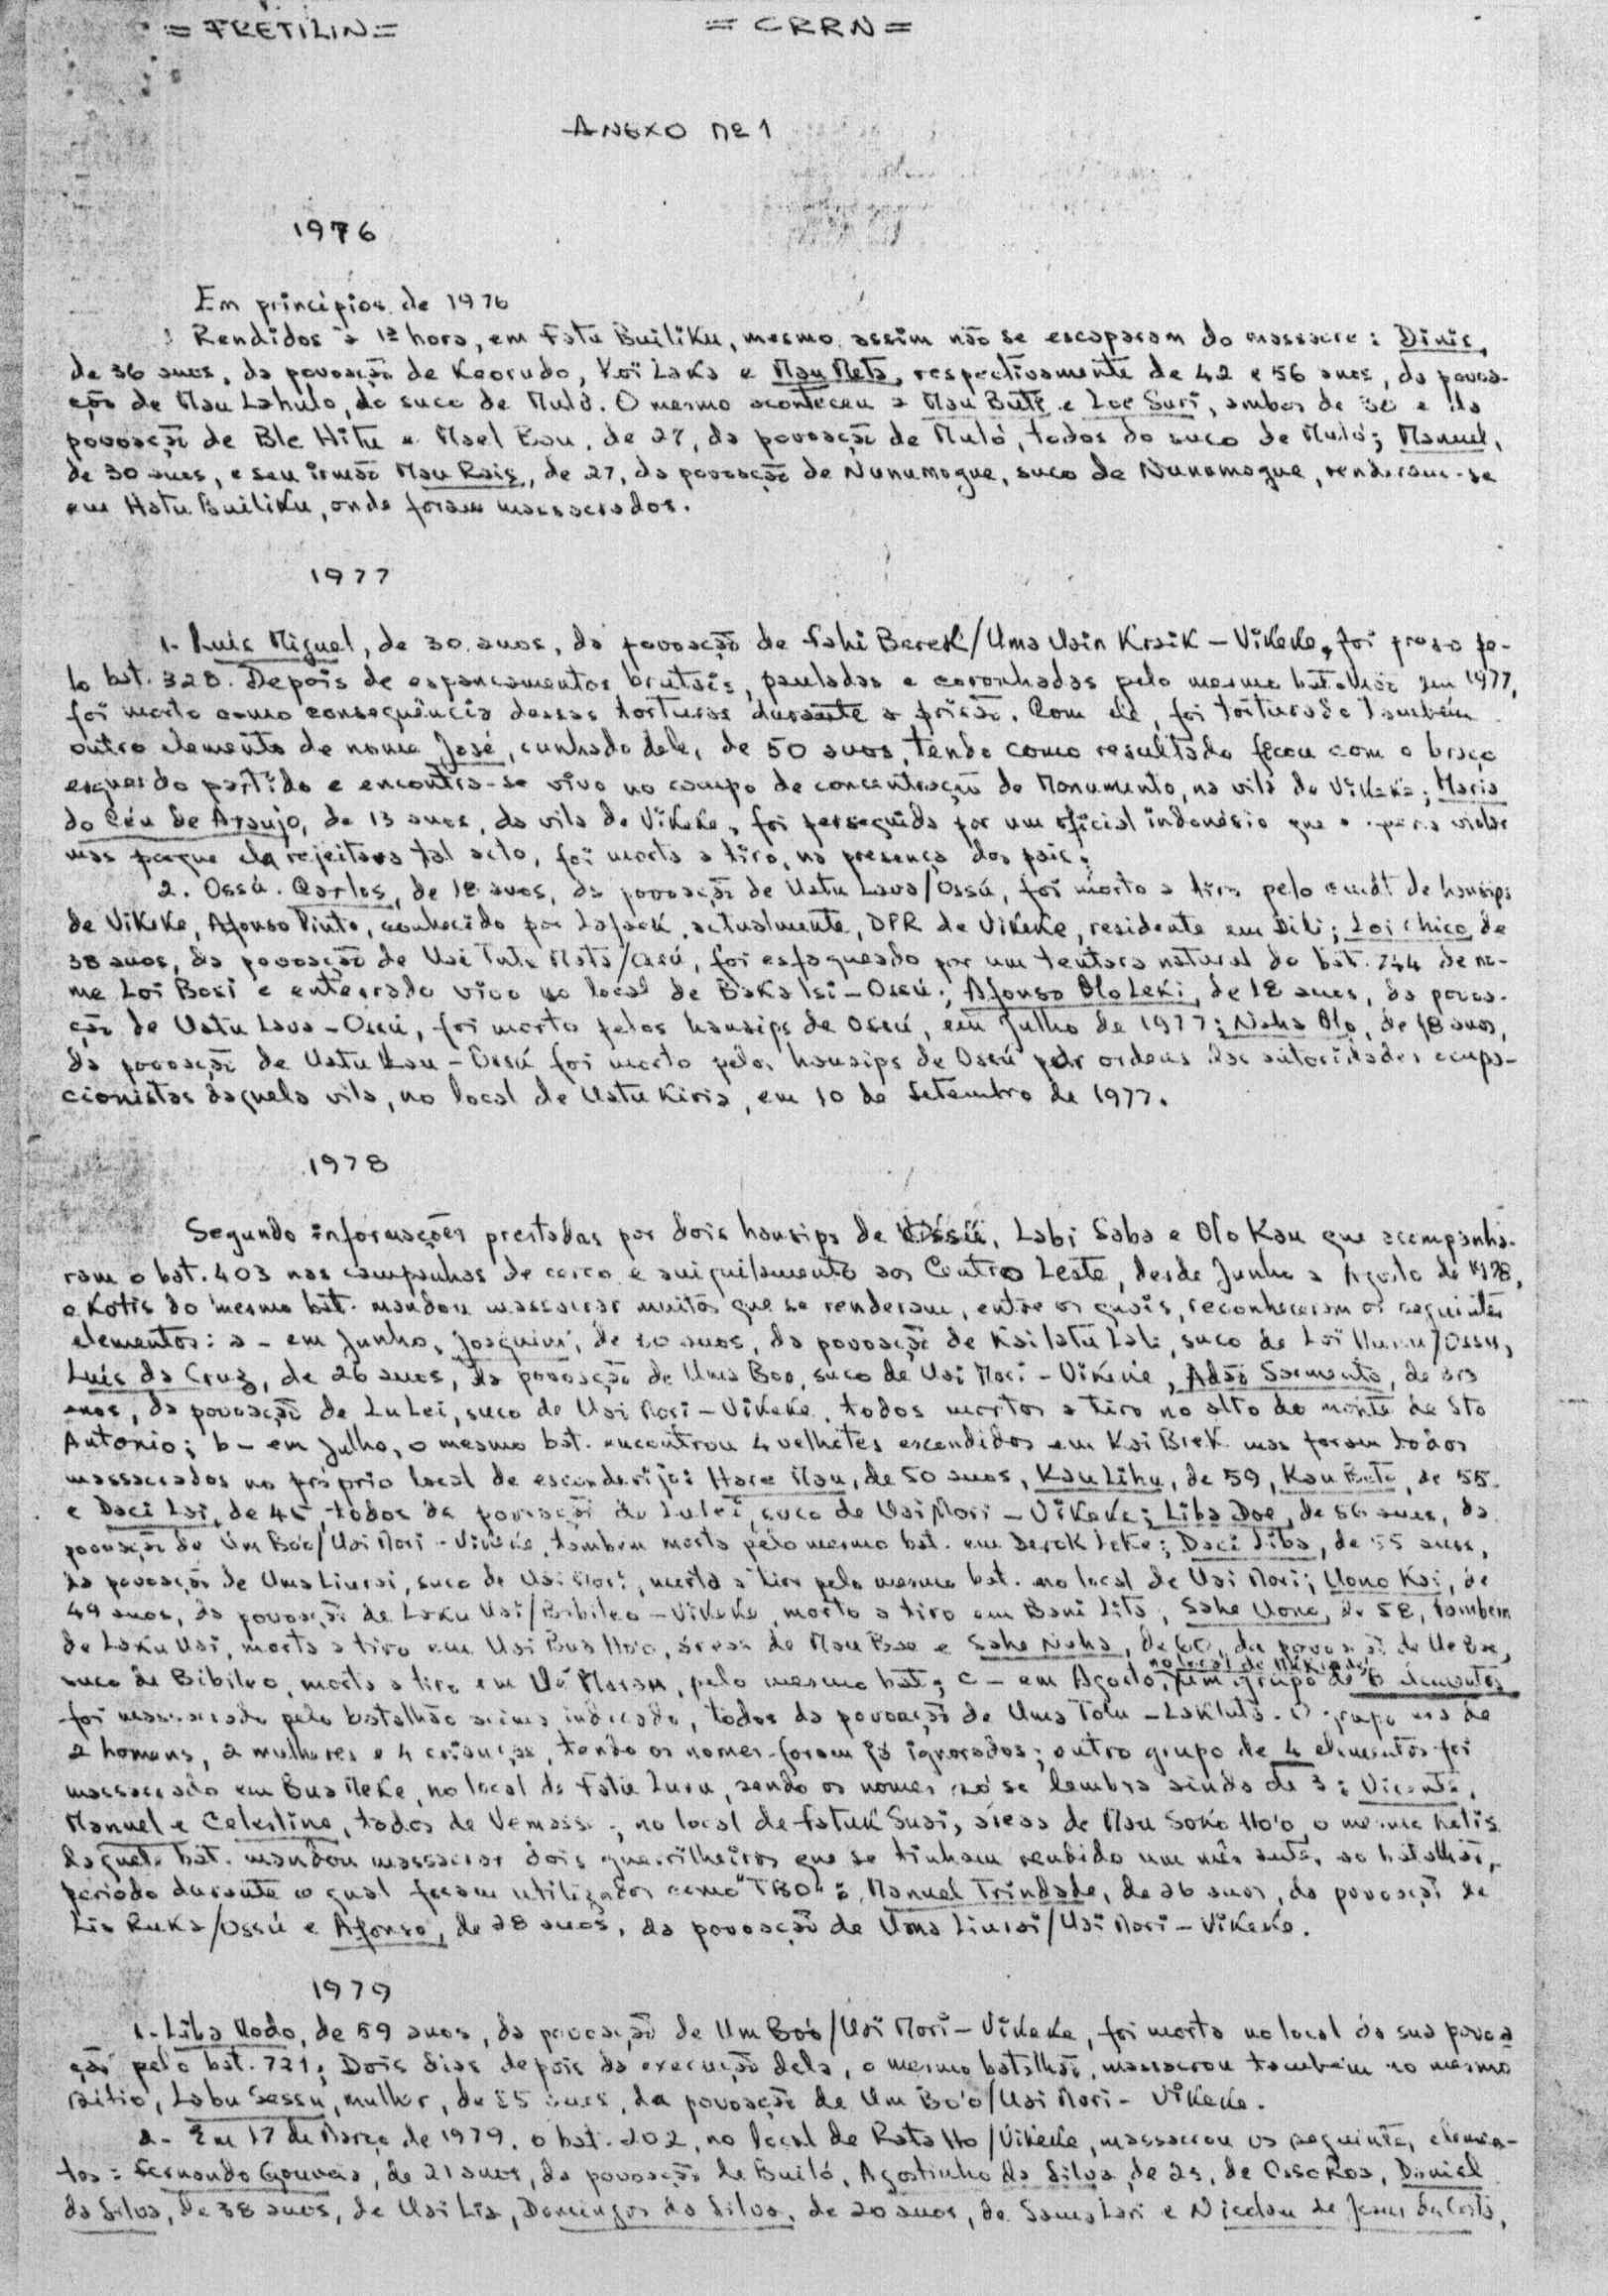 = FRETILIN = = CRRN =
ANEXO Nº 1
1976
Em princípios de 1976
Rendidos à 1ª hora, em Fatu Builiku, mesmo assim não se escaparam do massacre: Dinis,
de 36 anos, da povoação de Keorudo, Koi Laka e Mau Meta, respectivamente de 42 e 56 anos, da povoa-
ção de Mau Lahulo, do suco de Mulo. O mesmo aconteceu a Mau Bute e Loe Suri, ambos de e da
povoação de Ble Hitu e Mael Bau, de 27, da povoação de Muló, todos do suco de Muló; Manuel,
de 30 anos, e seu irmão Mau Rais, de 27, da povoação de Nunumogue, suco de Nunomogue, renderam-se
em Hatu Builiku, onde foram massacrados.
1977
1- Luís Miguel, de 30 anos, da povoação de Fahi Berek/Uma Uain Kraik - Vikeke, foi preso pe-
lo bat. 328. Depois de espancamentos brutais, pauladas e coronhadas pelo mesmo batalhão em 1977,
foi morto como consequência dessas torturas durante a prisão. Com ele, foi torturado também
outro elemento de nome José, cunhado dele, de 50 anos, tendo como resultado ficou com o braço
esquerdo partido e encontra-se vivo no campo de concentração do Monumento, na vila de Vikeke; Maria
do Céu de Araujo, de 13 anos, da vila de Vikeke, foi perseguida por um oficial indonésio que a queria violar
mas porque ela rejeitava tal acto, foi morta a tiro, na presença dos pais;
2. Ossú. Carlos, de 18 anos, da povoação de Uatu Lava/Ossú, foi morto a tiro pelo cmdt de hansips
de Vikeke, Afonso Pinto, conhecido por Lafaek, actualmente, DPR de Vikeke, residente em Dili; Loi Chico, de
38 anos, da povoação de Uai Tula Mata/Ossú, foi esfaqueado por um tentara natural do bat. 744 de no-
me Loi Bosi e enterrado vivo no local de Baka Isi - Ossú; Afonso Olo Leki, de 18 anos, da povoa-
ção de Uatu Lava - Ossú, foi morto pelos hansips de Ossú, em Julho de 1977; Naha Olo, de 18 anos,
da povoação de Uatu Lau - Ossú foi morto pelos hansips de Ossú por ordens das autoridades ocupa-
cionistas daquela vila, no local de Uatu Kiria, em 10 de Setembro de 1977.
1978
Segundo informações prestadas por dois hansips de Ossú, Labi Saba e Olo Kau que acompanha-
ram o bat. 403 nas campanhas de cerco e aniquilamento aos Centro Leste, desde Junho a Agosto de 1978,
o Kotis do mesmo bat. mandou massacrar muitos que se renderam, entre os quais, reconheceram os seguintes
elementos: a - em Junho, Joaquim, de 20 anos, da povoação de Kailatu Lale, suco de Loi Hunu/Ossu,
Luís da Cruz, de 26 anos, da povoação de Uma Boo, suco de Uai Mori - Vikeke, Adão Sarmento, de
anos, da povoação de Lu Lei, suco de Uai Mori - Vikeke, todos mortos a tiro no alto do monte de Sto
Antonio; b - em Julho, o mesmo bat. encontrou 4 velhotes escondidos em Kai Brek mas foram todos
massacrados no próprio local de esconderijo: Hare Mau, de 50 anos, Kau Lihu, de 59, Kau Bete, de 55
e Daci Loi, de 45, todos da povoação de Lulei, suco de Uai Mori - Vikeke; Liba Doe, de 56 anos, da
povoação de Um Bóo/Uai Mori - Vikeke, também morta pelo mesmo bat. em Derok Leke; Daci Liba, de 55 anos,
da povoação de Uma Liurai, suco de Uai Mori, morta a tiro pelo mesmo bat. no local de Uai Mori; Uono Kai, de
49 anos, da povoação de Laku Uai/Bibileo - Vikeke, morto a tiro em Bani Lita, Sahe Uono, de 58, também
de Laku Uai, morta a tiro em Uai Bua Ho'o, áreas de Mau Boo e Sahe Naha, de 60, da povoação de Ue Boe,
suco de Bibileo, morta a tiro em Ué Maran, pelo mesmo bat; c - em Agosto, no local de um grupo de 8 elementos
foi massacrado pelo batalhão acima indicado, todos da povoação de Uma Tolu - Lakluta. O grupo era de
2 homens, 2 mulheres e 4 crianças, tendo os nomes foram já ignorados; outro grupo de 4 elementos foi
massacrado em Bua Meke, no local de Fatu Luru, sendo os nomes só se lembra ainda de 3: Vicente,
Manuel e Celestino, todos de Vemasse; no local de Fatuk Suai, áreas de Mau Soko Ho'o, o mesmo
daquele bat. mandou massacrar dois guerrilheiros que se tinham rendido um mês antes ao batalhão,
período durante o qual foram utilizados como "TBO": Manuel Trindade, de 26 anos, da povoação de
Lia Ruka/Ossú e Afonso, de 28 anos, da povoação de Uma Liurai/Uai Mori - Vikeke.
1979
1- Liba Modo, de 59 anos, da povoação de Um Boó/Uai Mori - Vikeke, foi morta no local da sua povoa
ção pelo bat. 721; Dois dias depois da execução dela, o mesmo batalhão, massacrou também no mesmo
sitio, Labu Sessu, mulher, de 55 anos, da povoação de Um Bo'o/Uai Mori - Vikeke.
2- Em 17 de Março de 1979, o bat. 202, no local de Rata Ho/Vikeke, massacrou os seguintes elemen-
tos: Fernando Gouveia, de 21 anos, da povoação de Builó, Agostinho da Silva, de 23, de Ossoroa, Daniel
da Silva, de 38 anos, de Uai Lia, Domingos da Silva, de 20 anos, de Samalari e Nicolau de Jesus da Costa,